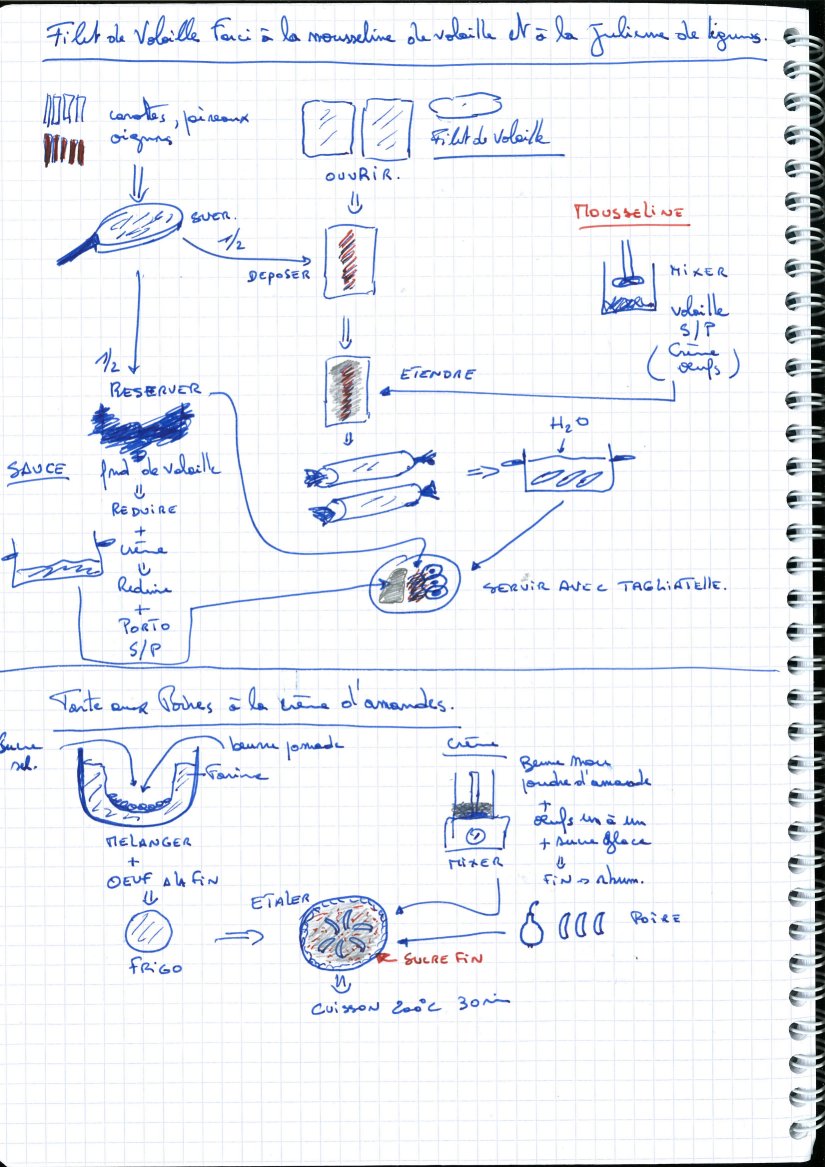 Filet de Volaille Farci à la mousseline de volaille et à la Julienne de légumes.
carottes, poireaux
oignons
Filet de Volaille
OUVRIR.
SUER.
1/2
DEPOSER
MOUSSELINE
MIXER
Volaille
S/P
(Crème
oeufs)
1/2
RESERVER
ETENDRE
H2O
SAUCE
fond de volaille
REDUIRE
+
crème
Reduire
+
PORTO
S/P
SERVIR AVEC TAGLIATELLE.
Tarte aux Poires à la crème d'amandes.
Sucre
sel.
beurre pomade
Farine
MELANGER
+
OEUF A LA FIN
FRIGO
Crème
Beurre Mou
poudre d'amande
+
oeufs un à un
+ sucre glace
FIN → rhum.
MIXER
ETALER
POIRE
SUCRE FIN
CUISSON 200°C 30 min